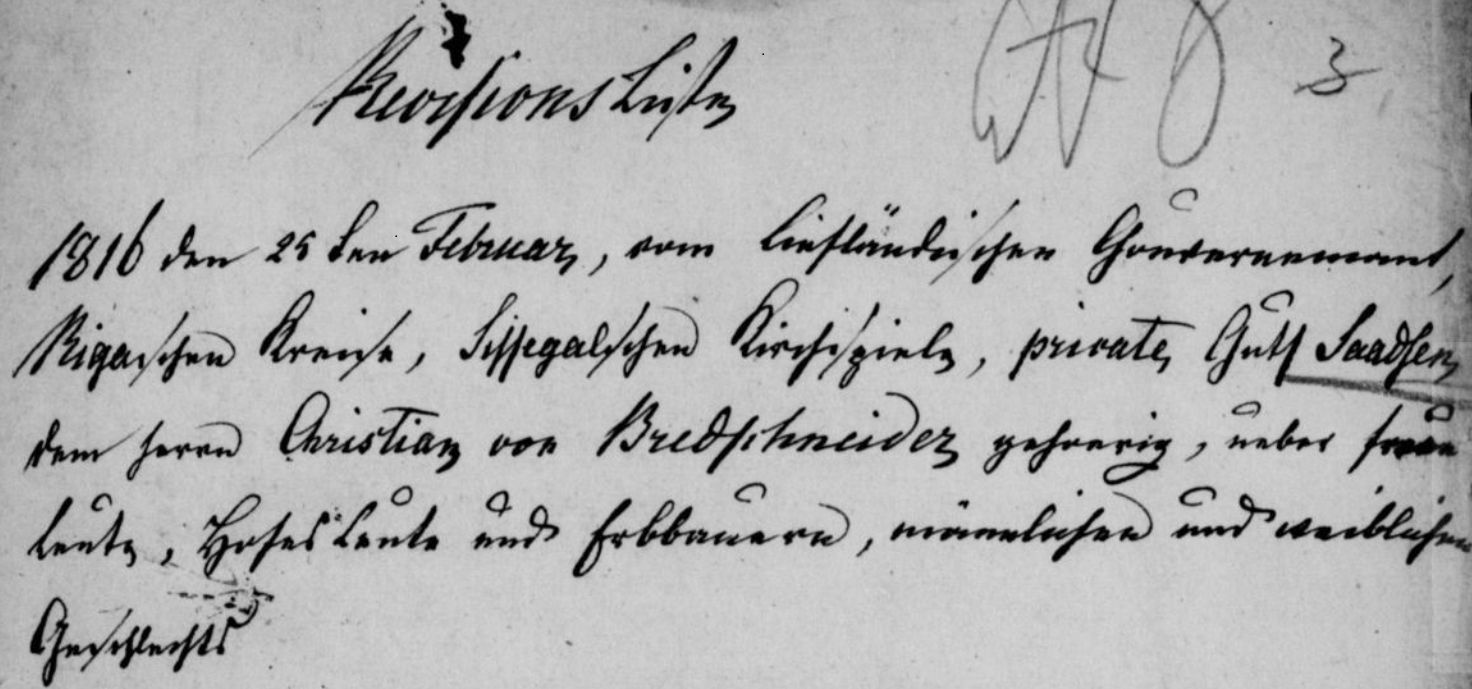 Revisions Liste
3
1816 den 25 ten Februar, vom Liefländischen Gouvernement,
Rigaschen Kreise, Sissegalschen Kirchspiele, private Guth Saadsen
dem Herrn Christian von Bredschneider gehoerig, ueber freie
Leute, Hofes Leute und Erbbauern, männlichen und weiblichen
Geschlechts